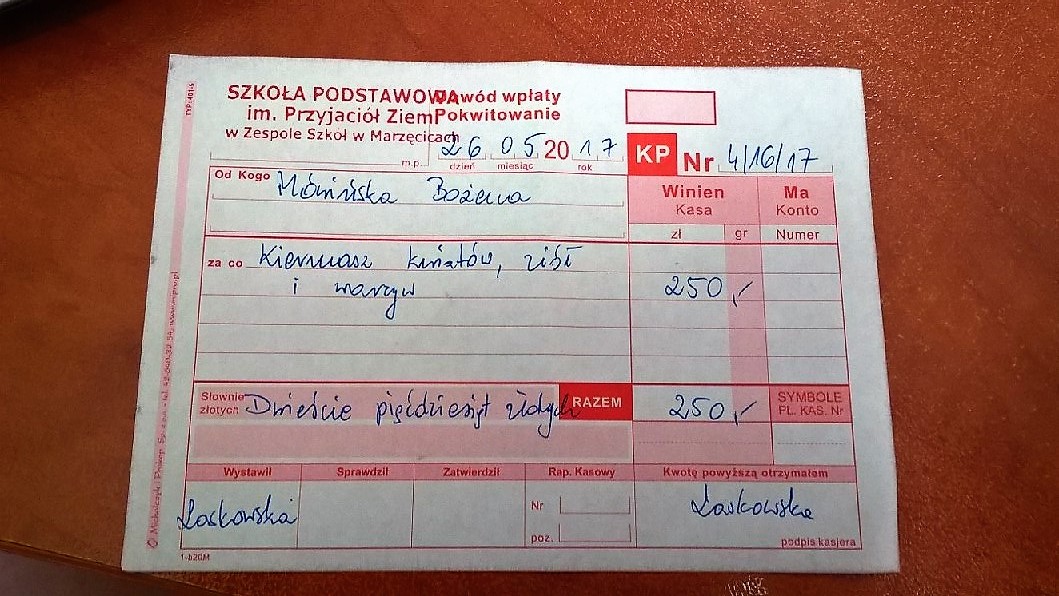 SZKOŁA PODSTAWOWA
im. Przyjaciół Ziemi
w Zespole Szkół w Marzęcicach
Dowód wpłaty
Pokwitowanie
m.p. 26 05 2017
dzień miesiąc rok
KP Nr 4/16/17
Od Kogo Bożena
Winien
Kasa
Ma
Konto
zł gr Numer
za co Kiermasz kwiatów, ziół
i warzyw
250,-
Słownie
złotych Dwieście pięćdziesiąt złotych
RAZEM 250,-
SYMBOLE
PL. KAS. Nr
Wystawił Sprawdził Zatwierdził Rap. Kasowy Kwotę powyższą otrzymałem
Laskowska
Nr
poz.
Laskowska
podpis kasjera